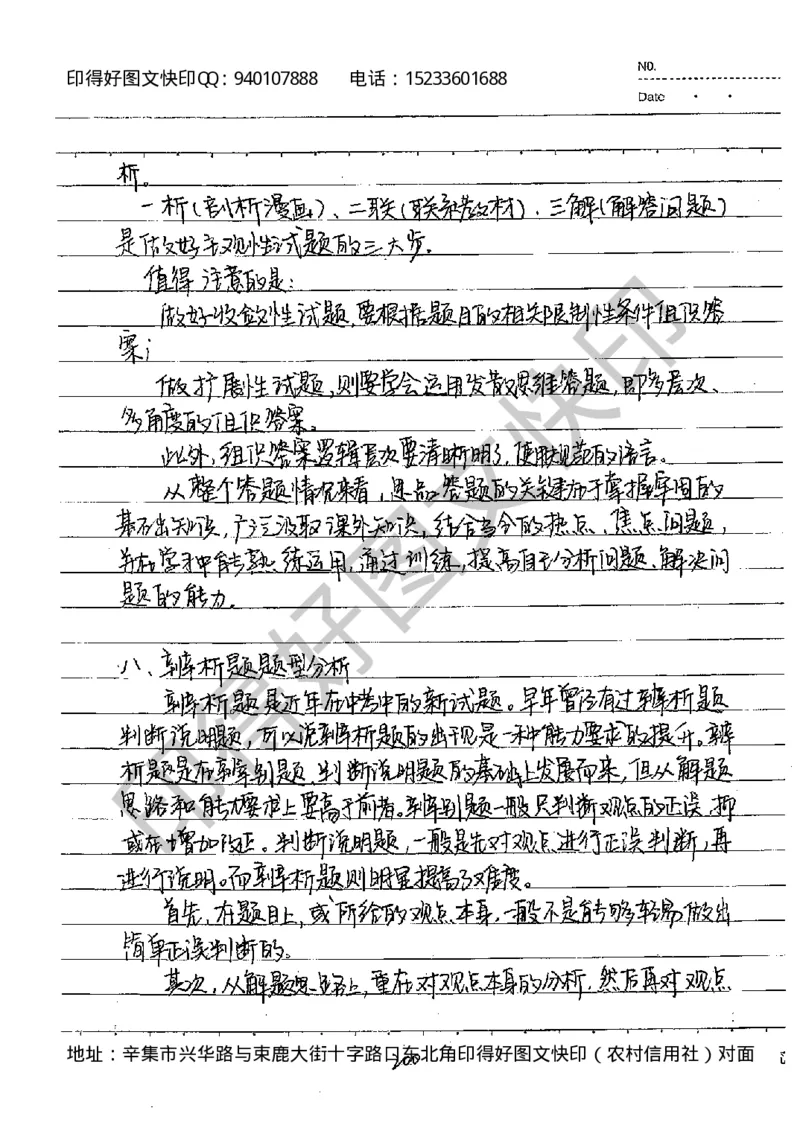 印得好图文快印QQ：940107888 电话：15233601688
NO.
Date
析。
一析(剖析漫画)、二联(联系教材)、三解(解答问题)
是做好主观性试题的三大步。
值得注意的是：
做好收敛性试题，要根据题目的相关限制性条件组织答
案；
做扩展性试题，则要学会运用发散思维答题，即多层次、
多角度的组织答案。
此外，组织答案逻辑层次要清晰明了，使用规范的语言。
从整个答题情况来看，思品答题的关键在于掌握牢固的
基础知识，广泛汲取课外知识，结合当今的热点、焦点问题，
并在学习中能熟练运用，通过训练，提高自己分析问题、解决问
题的能力。
八、辨析题题型分析
辨析题是近年在中考中的新试题。早年曾经有过辨析题
判断说明题，可以说辨析题的出现是一种能力要求的提升。辨
析题是在辨别题、判断说明题的基础上发展而来，但从解题
思路和能力要求上要高于前者。辨别题一般只判断观点的正误，抑
或在增加改正。判断说明题，一般是先对观点进行正误判断，再
进行说明。而辨析题则明显提高了难度。
首先，在题目上，或所给的观点本身，一般不是能够轻易做出
简单正误判断的。
其次，从解题思路上，重在对观点本身的分析，然后再对观点
地址：辛集市兴华路与束鹿大街十字路口东北角印得好图文快印（农村信用社）对面
200
印得好图文快印